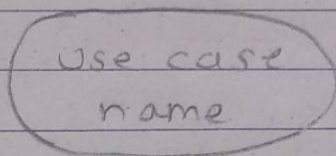 Use case
name